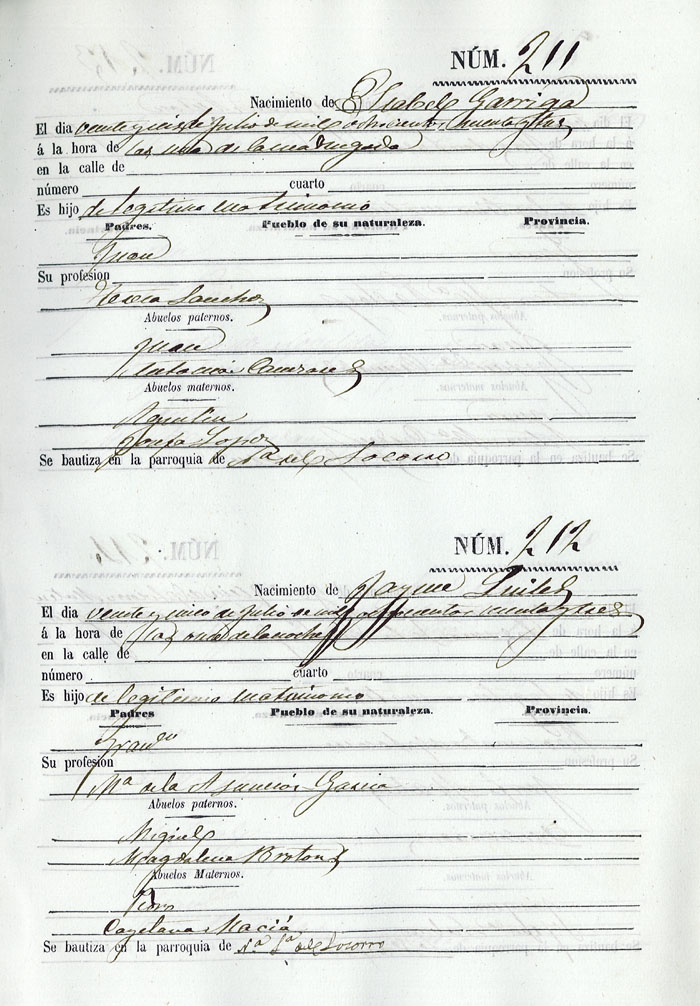 NÚM. 211
Nacimiento de Isabel Garriga
El dia veinte y cinco de Julio de mil ochocientos y tres
á la hora de las una de la madrugada
en la calle de
número cuarto
Es hijo de legitimo matrimonio
Padres. Pueblo de su naturaleza. Provincia.
Juan
Su profesion
Teresa Sanchez
Abuelos paternos.
Juan
Antonia
Abuelos maternos.
Agustin
Josefa Lopez
Se bautiza en la parroquia de Nª del Socorro
NÚM. 212
Nacimiento de Jayme
El dia veinte y cinco de Julio de mil ochocientos y tres
á la hora de las una de la noche
en la calle de
número cuarto
Es hijo de legitimo matrimonio
Padres Pueblo de su naturaleza. Provincia.
Franco
Su profesion
Mª de la Asuncion Garcia
Abuelos paternos.
Miguel
Magdalena Brotons
Abuelos Maternos.
Cayetana Maciá
Se bautiza en la parroquia de Nª Sª del Socorro